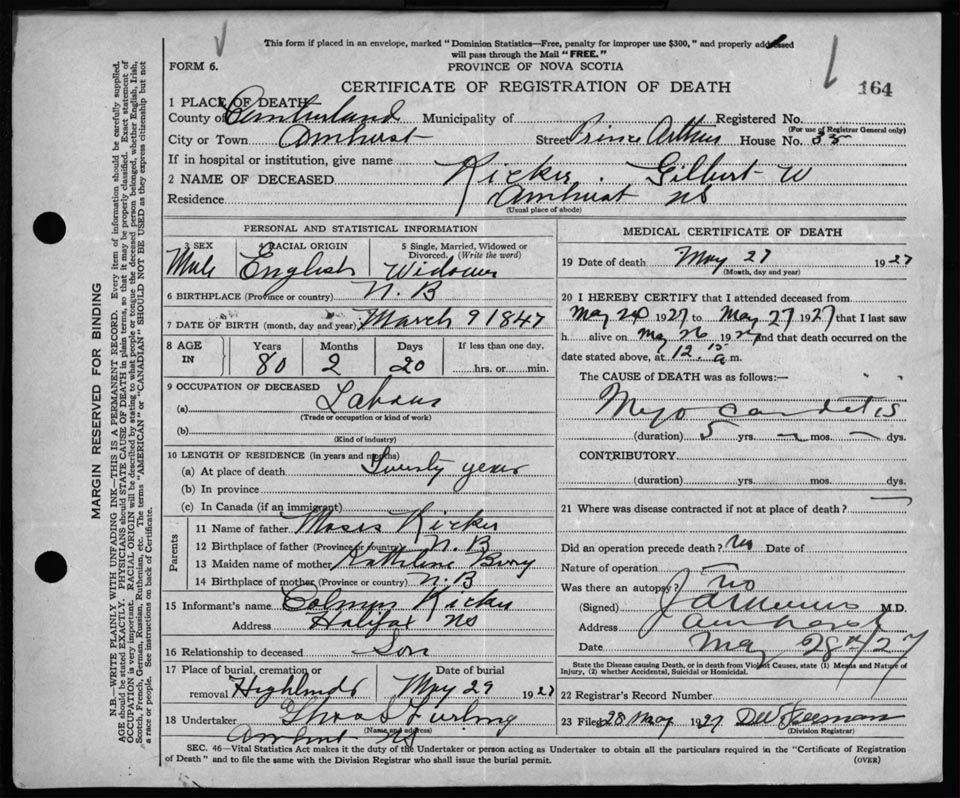 This form if placed in an envelope, marked "Dominion Statistics—Free, penalty for improper use $300," and properly addressed
will pass through the Mail "FREE."
FORM 6. PROVINCE OF NOVA SCOTIA
CERTIFICATE OF REGISTRATION OF DEATH 164
1 PLACE OF DEATH
County of Cumberland Municipality of Registered No.
(For use of Registrar General only)
City or Town Amherst Street Prince Arthur House No. 35
If in hospital or institution, give name
2 NAME OF DECEASED Ricker. Gilbert W
Residence Amherst NS
(Usual place of abode)
PERSONAL AND STATISTICAL INFORMATION
3 SEX 4 RACIAL ORIGIN 5 Single, Married, Widowed or
Divorced. (Write the word)
Male English Widower
6 BIRTHPLACE (Province or country) N.B
7 DATE OF BIRTH (month, day and year) March 9 1847
8 AGE IN Years Months Days If less than one day,
80 2 20 hrs. or min.
9 OCCUPATION OF DECEASED
(a) Labour
(Trade or occupation or kind of work)
(b)
(Kind of industry)
10 LENGTH OF RESIDENCE (in years and months)
(a) At place of death Twenty years
(b) In province
(c) In Canada (if an immigrant)
Parents
11 Name of father Moses Ricker
12 Birthplace of father (Province or country) N.B
13 Maiden name of mother Kathlene
14 Birthplace of mother (Province or country) N.B
15 Informant's name Ricker
Address Halifax NS
16 Relationship to deceased Son
17 Place of burial, cremation or Date of burial
removal Highlands May 29 1927
18 Undertaker
(Name and address)
Amherst NS
MEDICAL CERTIFICATE OF DEATH
19 Date of death May 27 1927
(Month, day and year)
20 I HEREBY CERTIFY that I attended deceased from
May 24 1927 to May 27 1927 that I last saw
h alive on May 26 1927 and that death occurred on the
date stated above, at 12 15 a m.
The CAUSE of DEATH was as follows:—
Myocarditis
(duration) 5 yrs. — mos. — dys.
CONTRIBUTORY
(duration) yrs. mos. dys.
21 Where was disease contracted if not at place of death? —
Did an operation precede death? No Date of
Nature of operation —
Was there an autopsy? No
(Signed) M.D.
Address Amherst
Date May 28th/27
State the Disease causing Death, or in death from Violent Causes, state (1) Means and Nature of
Injury, (2) whether Accidental, Suicidal or Homicidal.
22 Registrar's Record Number
23 Filed 28 May 1927
(Division Registrar)
SEC. 46—Vital Statistics Act makes it the duty of the Undertaker or person acting as Undertaker to obtain all the particulars required in the "Certificate of Registration
of Death" and to file the same with the Division Registrar who shall issue the burial permit. (OVER)
MARGIN RESERVED FOR BINDING
N.B.—WRITE PLAINLY WITH UNFADING INK—THIS IS A PERMANENT RECORD. Every item of information should be carefully supplied.
AGE should be stated EXACTLY. PHYSICIANS should STATE CAUSE OF DEATH in plain terms, so that it may be properly classified. Exact statement of
OCCUPATION is very important. RACIAL ORIGIN will be described by stating to what people or tongue the deceased person belonged, whether English, Irish,
Scotch, French, German, Russian, Ruthenian, etc. The terms "AMERICAN" or "CANADIAN" SHOULD NOT BE USED as they express citizenship but not
a race or people. See instructions on back of Certificate.